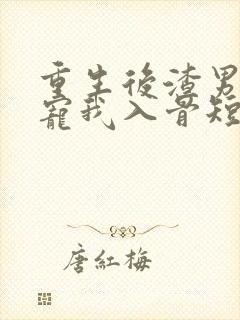 重生後渣男
寵我入骨短
唐紅梅